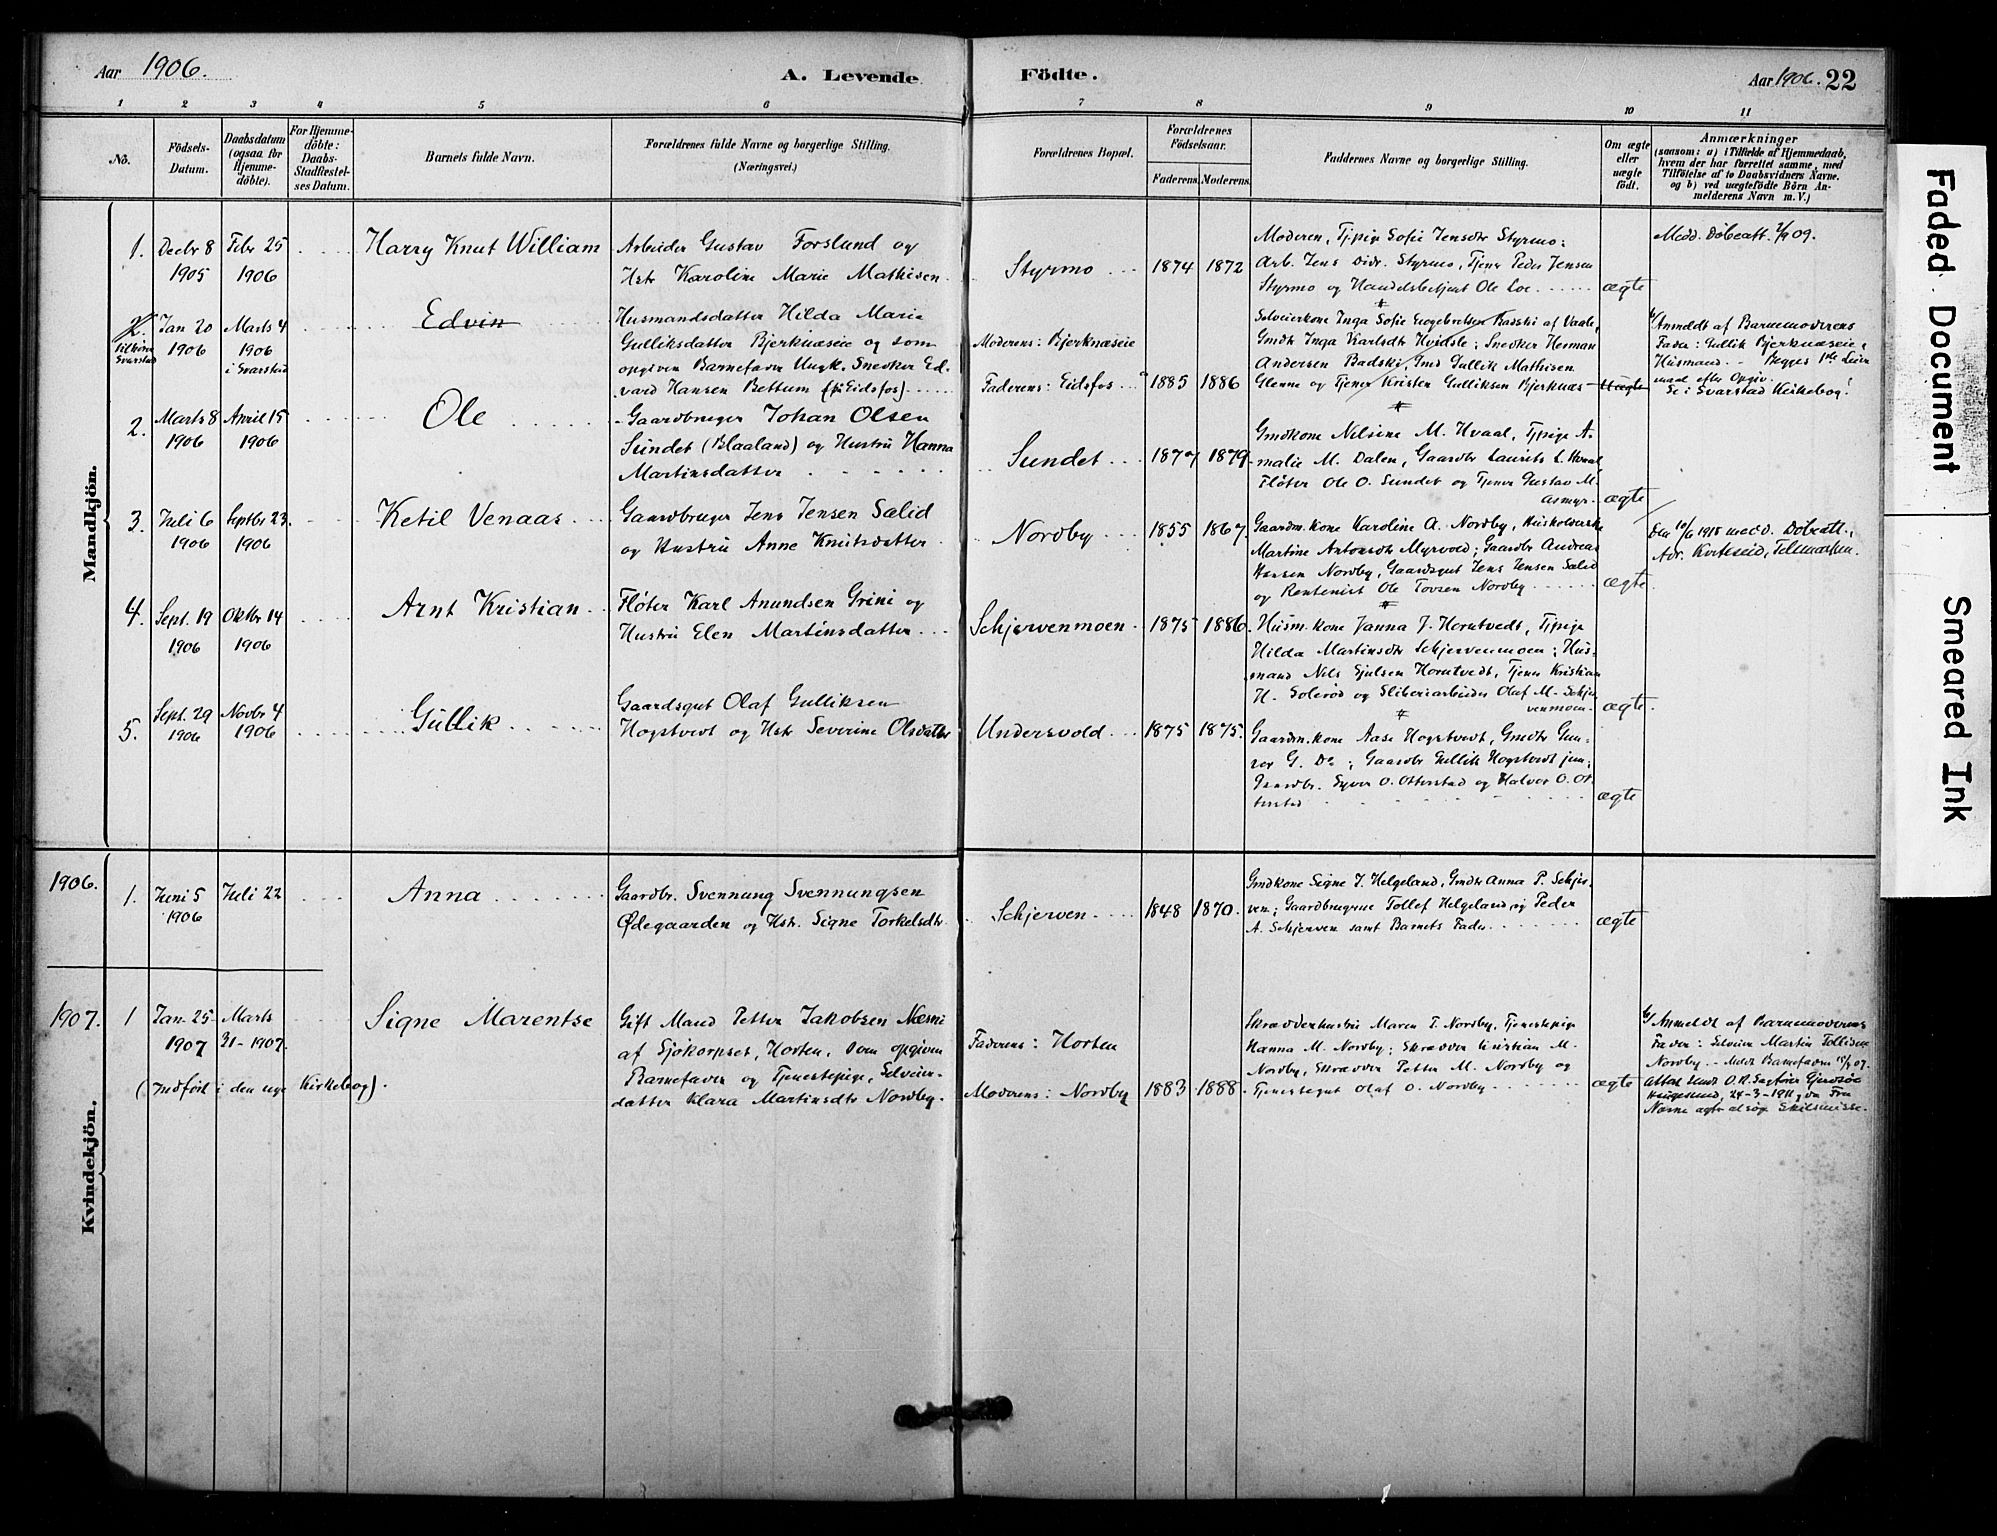 Aar 1906.
A. Levende
Födte.
Aar 1906. 22
1 2 3 4 5 6 7 8 9 10 11
No.
Födsels-
Datum.
Daabsdatum
(ogsaa for
Hjemme-
döbte).
For Hjemme-
döbte:
Daabs-
Stadfæstel-
ses Datum.
Barnets fulde Navn.
Forældrenes fulde Navne og borgerlige Stilling.
(Næringsvei.)
Forældrenes Bopæl.
Forældrenes
Födselsaar.
Faderens. Moderens.
Faddernes Navne og borgerlige Stilling.
Om ægte
eller
uægte
födt.
Anmærkninger
(saasom: a) i Tilfælde af Hjemmedaab,
hvem der har forrettet samme, med
Tilföielse af to Daabsvidners Navne.
og b) ved uægtefödte Börn An-
melderens Navn m. V.)
Mandkjön.
1. Decbr 8
1905
Febr 25
1906
Harry Knut William
Arbeider Gustav Forslund og
Hstr Karoline Marie Mathisen
Styrmo
1874 1872
Moderen, Tjpige Sofie Jensdtr Styrmo;
Arb. Jens Didr. Styrmo, Tjener Peder Jensen
Styrmo og Handelsbetjent Ole Loe
ægte
Medd. Döbeatt. 09.
2.
Svarstad
Jan 20
1906
Marts 4
1906
i Svarstad
Edvin
Husmandsdatter Hilda Marie
Gulliksdatter Bjerknæseie og som
opgiven Barnefader Ungk. Snedker Ed-
vard Hansen Bettum (fra Eidsfos)
Moderens: Bjerknæseie
Faderens: Eidsfos
1885 1886
Selveierkone Inga Sofie Engebretsen Badski af Vaale,
Gmdtr Inga Karlsdtr Hvidsle; Snedker Herman
Andersen Badski, Gmd Gullik Mathisen
Glenne og Tjener Kristen Gulliksen Bjerknæs
Uægte
Anmeldt af Barnemoderens
Fader: Gullik Bjerknæseie,
Husmand. - Begges 1ste Leier
maal efter Opgiv.
Se i Svarstad Kirkebog!
2. Marts 8
1906
April 15
1906
Ole
Gaardbruger Johan Olsen
Sundet (Blaaland) og Hustru Hanna
Martinsdatter
Sundet
1877 1879
Gmdkone Nilsine M. Hvaal, Tjpige A-
malie M. Dalen, Gaardbr Laurits L. Hvaal,
Fløter Ole O. Sundet og Tjener Gustav M.
Asmyr.
ægte
3. Juli 6
1906
Septbr 23.
1906
Ketil Venaas
Gaardbruger Jens Jensen Salid
og Hustru Anne Knutsdatter
Nordby
1855 1867
Gaardm.kone Karoline A. Nordby, Husholderske
Martine Antonsdtr Myrvold; Gaardbr Andreas
Hansen Nordby, Gaardsgut Jens Jensen Salid
og Rentenist Ole Tovsen Nordby
ægte
Den 10/6 1918 medd. Döbeatt.,
Adr. Kviteseid, Telemarken.
4. Sept. 19
1906
Oktbr 14
1906
Arnt Kristian
Fløter Karl Anundsen Grini og
Hustru Elen Martinsdatter
Schjervenmoen
1875 1886
Husm.kone Janna J. Horntvedt, Tjpige
Hilda Martinsdtr Schjervenmoen; Hus-
mand Nils Ejulsen Horntvedt, Tjener Kristian
H. Solerød og Sliberiarbeider Olaf M. Schjer
venmoen.
ægte
5. Sept. 29
1906
Novbr 4
1906
Gullik
Gaardsgut Olaf Gulliksen
Hogstvedt og Hstr Severine Olsdatter
Undersvold
1875 1875
Gaardm.kone Aase Hogstvedt, Gmdtr Gun-
vor G. Do; Gaardbr Gullik Hogstvedt jun,
Gaardbr. Syver O. Otterstad og Halvor O. Ot
terstad
ægte
1906.
1. Juni 5
1906
Juli 22
Anna
Gaardbr. Svennung Svennungsen
Ødegaarden og Hstr. Signe Torkelsdtr.
Schjerven
1848 1870
Gmdkone Signe J. Helgeland, Gmdtr Anna P. Schjer-
ven; Gaardbrugerne Tollef Helgeland og Peder
A. Schjerven samt Barnets Fader
ægte
Kvindekjön.
1907.
1 Jan 25
1907
Marts
31-1907.
Signe Marentse
(Indført i den nye Kirkebog).
Gift Mand Petter Jakobsen Næsne
af Sjökorpset, Horten, som opgiven
Barnefader og Tjenestepige, Selveier-
datter Klara Martinsdtr Nordby.
Faderens: Horten
Moderens: Nordby
1883 1888
Skrædderhustru Maren T. Nordby, Tjenestepige
Hanna M. Nordby; Skrædder Kristian M.
Nordby, Skrædder Petter M. Nordby og
Tjenestegut Olaf O. Nordby
ægte
Anmeldt af Barnemoderens
Fader: Selveier Martin Tollefsen
Nordby. - Meldt Barnefadern 07.
Attest sendt O.R. Sagfører Gjerdsøe
Haugesund, 24-3-1911, da Fru
Næsne agter at søge Skilsmisse.
Faded Document
Smeared Ink